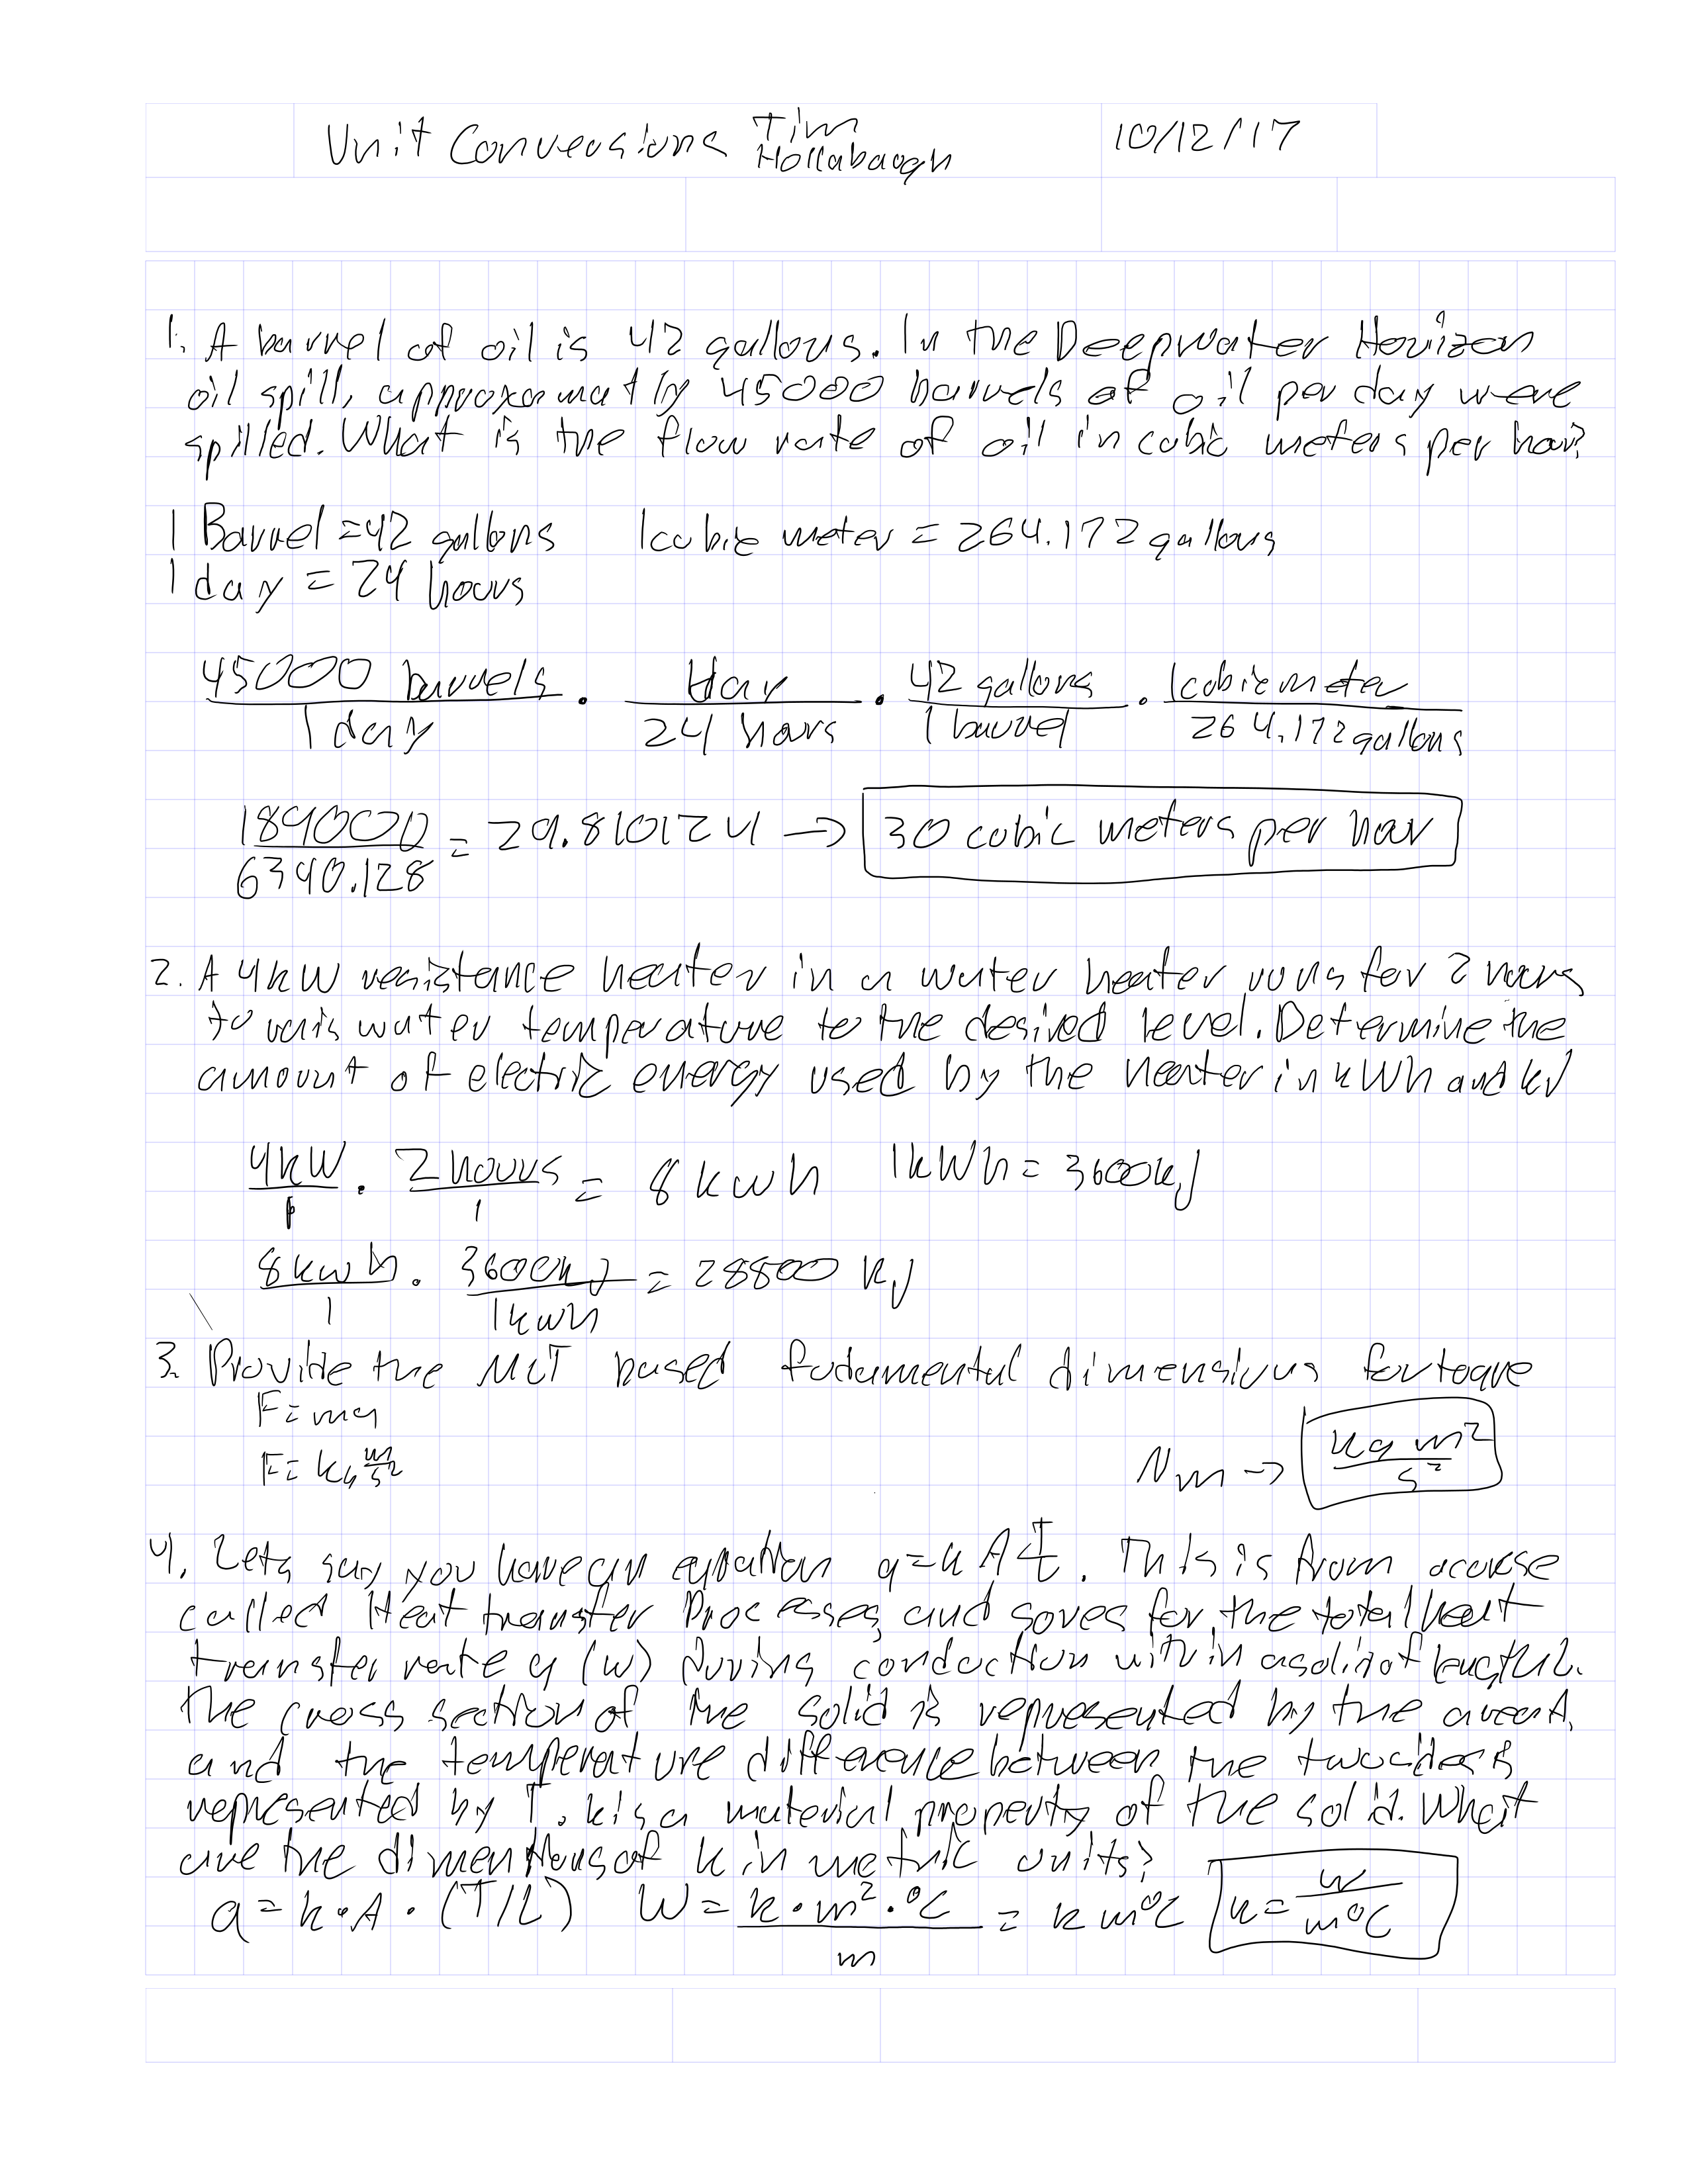 Unit Conversions Tim Hollabaugh 10/12/17
1. A barrel of oil is 42 gallons. In the Deepwater Horizon
oil spill, approxomatly 45000 barrels of oil per day were
spilled. What is the flow rate of oil in cubic meters per hour?
1 Barrel = 42 gallons 1 cubic meter = 264.172 gallons
1 day = 24 hours
45000 barrels / 1 day · 1 day / 24 hours · 42 gallons / 1 barrel · 1 cubic meter / 264.172 gallons
1890000 / 6340.128 = 29.810124 → 30 cubic meters per hour
2. A 4kW resistance heater in a water heater runs for 2 hours
to rais water temperature to the desired level. Determine the
amount of electric energy used by the heater in kWh and kJ
4kW / 1 · 2 hours / 1 = 8 kwh 1kWh = 3600kJ
8kwh / 1 · 3600kJ / 1kwh = 28800 kJ
3. Provide the MLT based fudamental dimensions for toque
F = ma
F = kg m/s² Nm → kg m² / s²
4. Lets say you have an equation q = k A T/L. This is from a course
called Heat transfer Processes, and soves for the total heat
transfer rate q (w) during conduction within a solid of length L.
The cross section of the solid is represented by the area A,
and the temperature difference between the two cides is
represented by T. k is a material property of the solid. What
are the dimentions of k in metric units?
q = k · A · (T/L) W = k · m² · °C / m = k m°C k = w / m°C